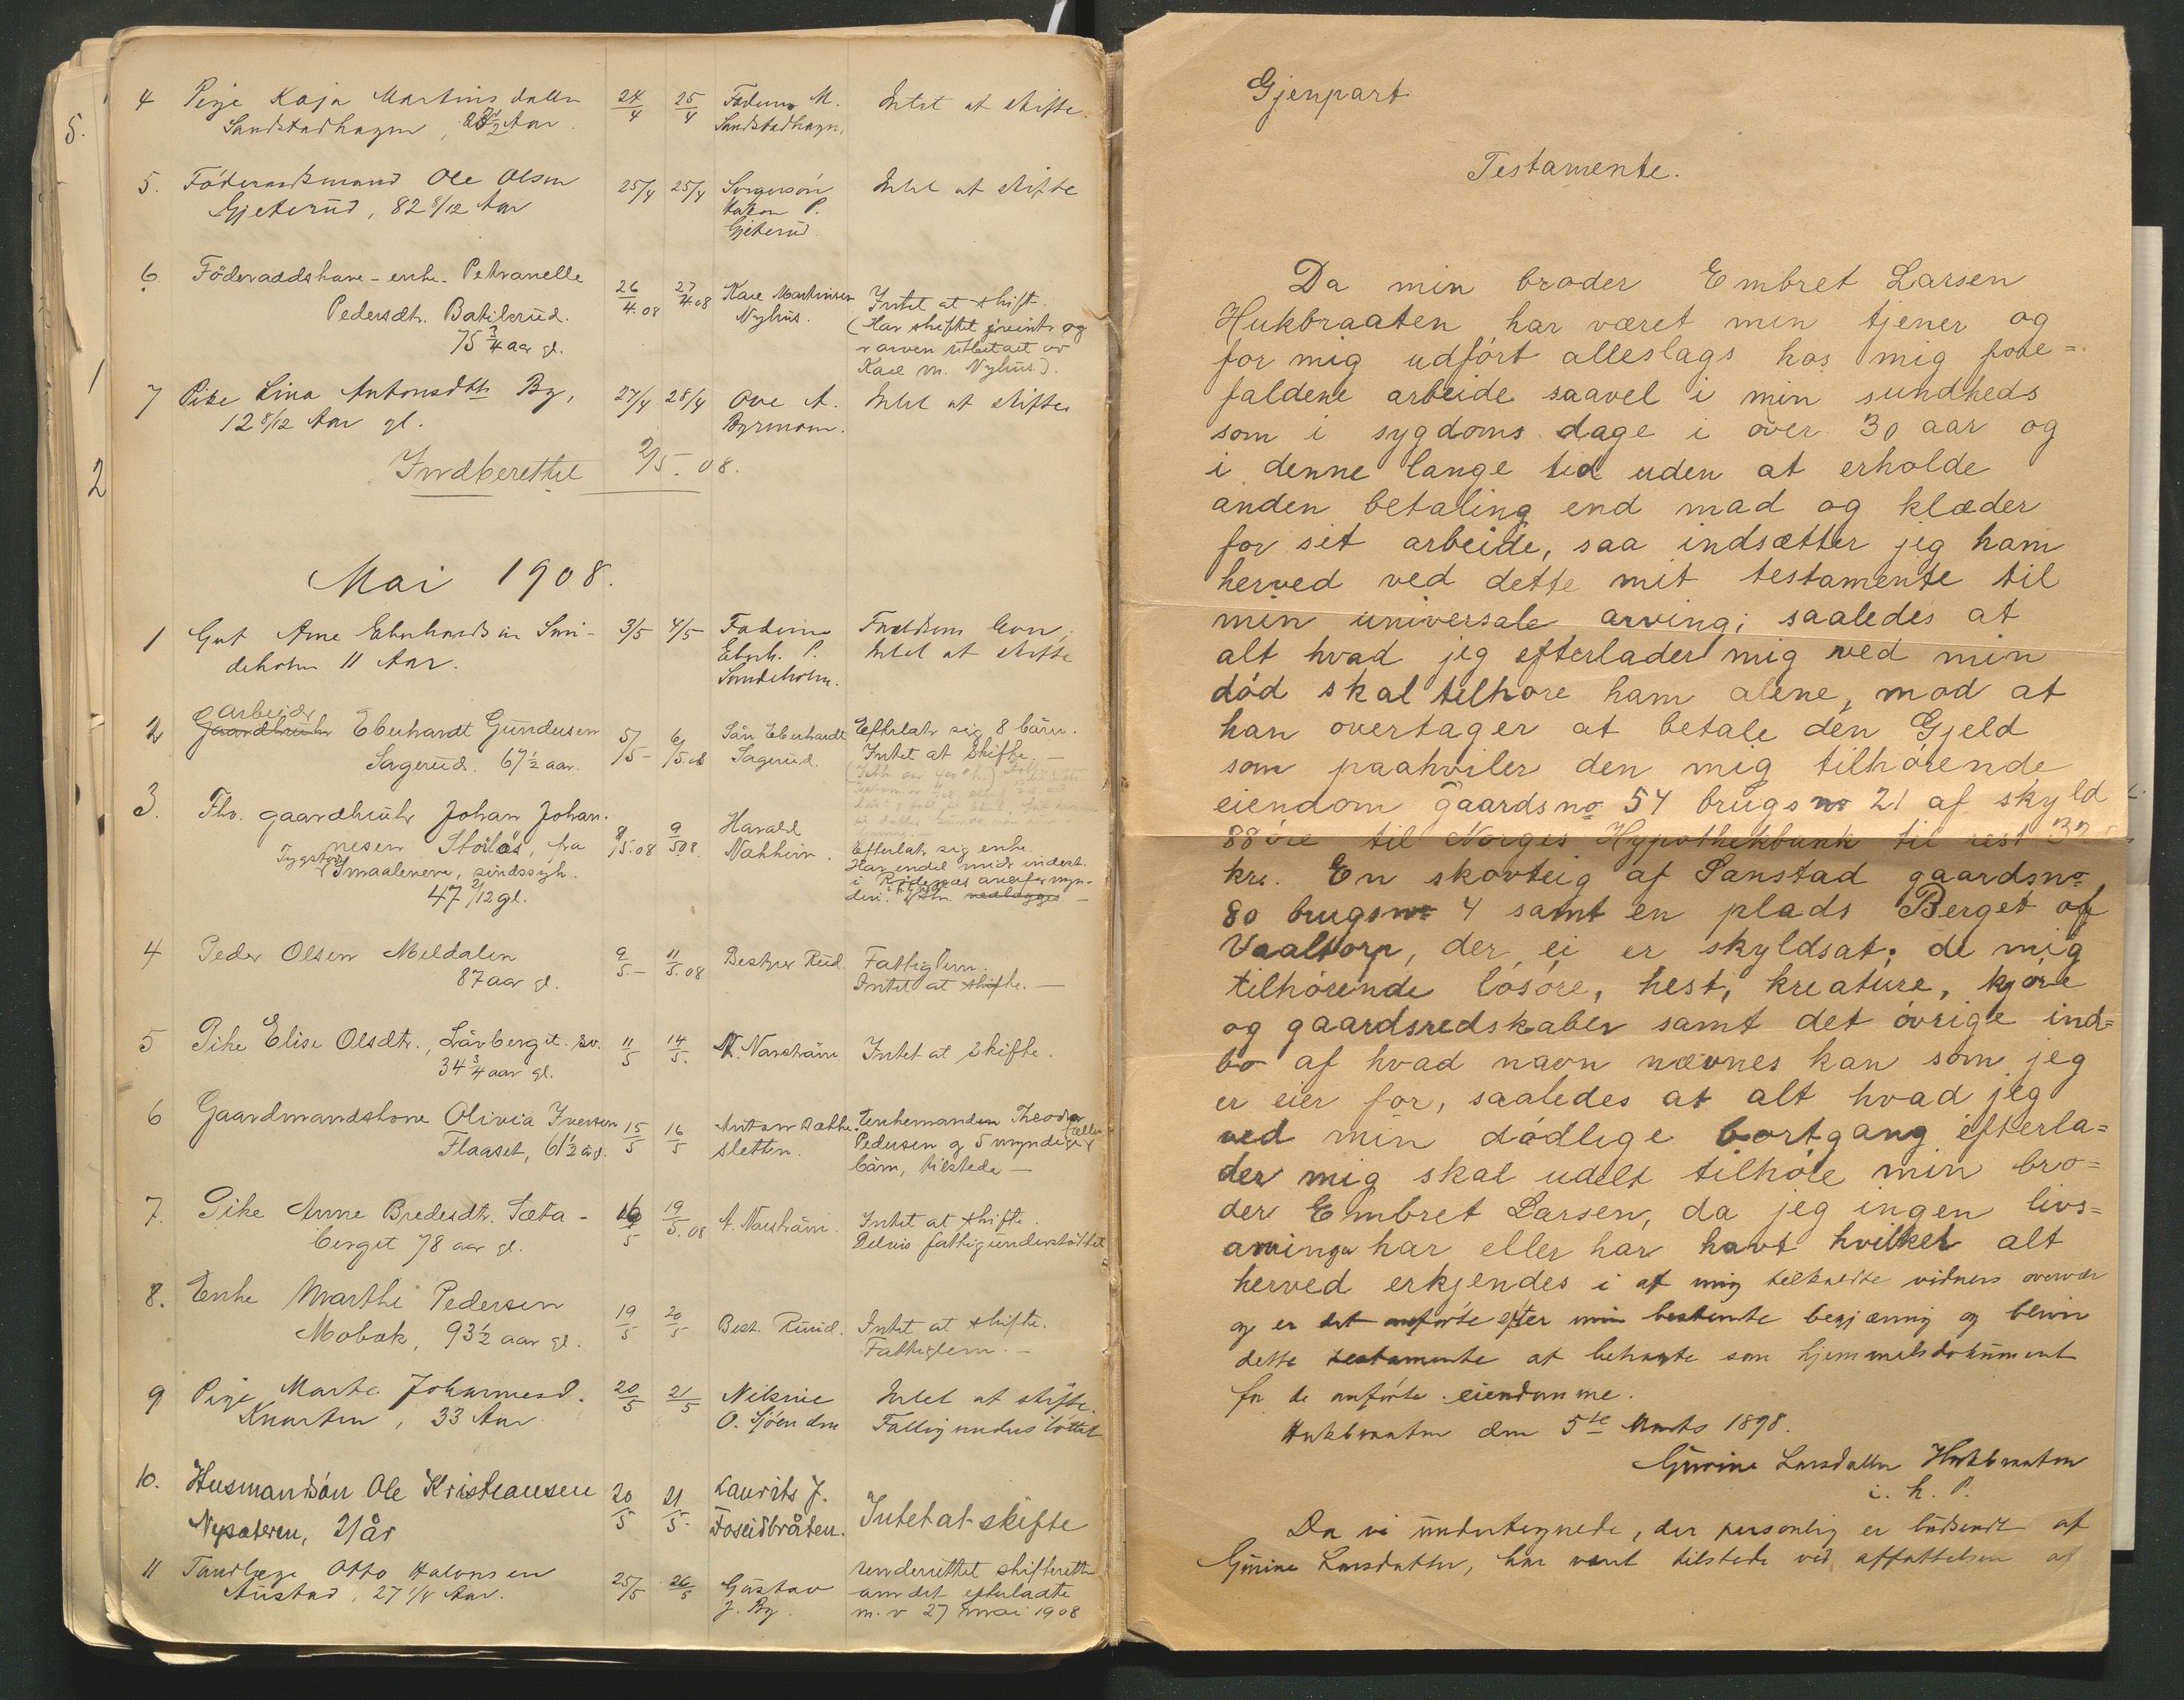 5.
1
2
4 Pige Kaja Martinsdatter 24/4 25/4 Faderen M. Intet at skifte.
Sandstadhagen, Aar Sandstadhagen,
5. Föderaadsmand Ole Olsen 25/4 25/4 Svigersön Intet at skifte
Gjeterud, 82 8/12 Aar Hakon P.
Gjeterud
6. Föderaadshave-enke Petranelle 26/4.08 27/4.08 Karl Martinsen Intet at skift.
Pedersdtr. Nyhus. (Har skiftet og
75 3/4 aar gl. arven utbetalt av
Karl M. Nyhus).
7 Pike Lina Antonsdtr By, 27/4 28/4 Ove A. Intet at skifte
12 8/12 Aar gl. Byrmoen.
Indberettet 2/5.08.
Mai 1908.
1 Gut Arne Eberhardsen Smi- 3/5 4/5 Faderen Intet at skifte
deholm 11 Aar. Eberh. P.
2 Arbeider Gaardbruker Eberhardt Gundersen 5/5- 6/5.08 Sön Eberhardt Efterlater sig 8 börn.
Sagerud. 67 1/2 aar. Sagerud. Intet at skifte. —
3. Fhv. gaardbruker Johan Johan- 8/5.08 9/5.08 Harald Efterlater sig enke.
nesen fra Nakkim. Har endel midler indest.
Smaalenene, sindssyk. i overformyn-
47 2/12 gl. deri. nedlægges. —
4 Peder Olsen Meldalen 9/5- 11/5.08 Bestyrer Rud. Fattiglem.
87 aar gl. Intet at skifte. —
5 Pike Elise Olsdtr., Lövberget. 11/5 14/5. N. Navström Intet at skifte.
34 3/4 aar gl.
6 Gaardmandskone Olivia Iversen 15/5 16/5 Anton Sæthe- Enkemanden Theodor
Flaaset, 61 1/2 år. sletten. Pedersen og 5 myndige
börn, tilstede —
7. Pike Anne Bredesdtr. Sæta- 16/5 19/5.08 N. Navström. Intet at skifte.
berget 78 aar gl. Delvis fattigunderstöttet
8. Enke Marthe Pedersen 19/5 20/5 Best. Ruud. Intet at skifte.
Mobæk, 93 1/2 aar gl. Fattiglem. —
9 Pige Marte Johannesd. 20/5 21/5 Nikrine Intet at skifte.
33 Aar O. Sjöenden Fattigunderstöttet
10. Husmandsön Ole Kristiansen 20/5 21/5. Laurits J. Intet at skifte
Nysæteren, 21 år Foseidbråten.
11 Tandlæge Otto Halvorsen 25/5 26/5 Gustav underrettet skifteretten
Austad, 27 1/4 Aar. J. By. om det efterladte
m. v 27 mai 1908
Gjenpart
Testamente.
Da min broder Embret Larsen
Hukbraaten har været min tjener og
for mig udført alleslags hos mig fore=
faldene arbeide saavel i min sundheds
som i sygdoms dage i over 30 aar og
i denne lange tid uden at erholde
anden betaling end mad og klæder
for sit arbeide, saa indsætter jeg ham
herved ved dette mit testamente til
min universale arving; saaledes at
alt hvad jeg efterlader mig ved min
død skal tilhøre ham alene, mod at
han overtager at betale den Gjeld
som paahviler den mig tilhørende
eiendom gaardsno 54 brugsno 21 af skyld
88 øre til Norges Hypothekbank til rest
kr. En skovteig af Sanstad gaardsno
80 brugsno 4 samt en plads Berget af
Vaaltorp, der ei er skyldsat; de mig
tilhørende løsøre, hest, kreature, kjøre
og gaardsredskaber samt det øvrige ind=
bo af hvad navn nævnes kan som jeg
er eier for, saaledes at alt hvad jeg
ved min dødlige bortgang efterla=
der mig skal udelt tilhøre min bro=
der Embret Larsen, da jeg ingen livs=
arvinger har eller har havt hvilket alt
herved erkjendes i af mig tilkaldte vidners overvær
og er det anførte efter min bestemte begjæring og bliver
dette testamente at betragte som hjemmelsdokument
for de anførte eiendomme.
Hukbraaten den 5te Marts 1898.
Gurine Larsdatter Hukbraaten
i. h. P.
Da vi undertegnede, der personlig er tilkaldt af
Gurine Larsdatter, har været tilstede ved affattelsen af